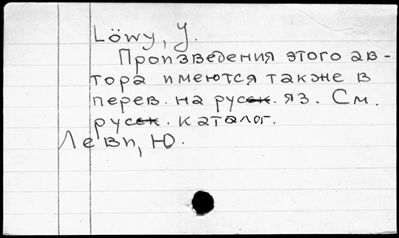 Löwy, J.
Произведения этого ав-
тора имеются также в
перев. на русск. яз. См.
русск. каталог.
Леви, Ю.